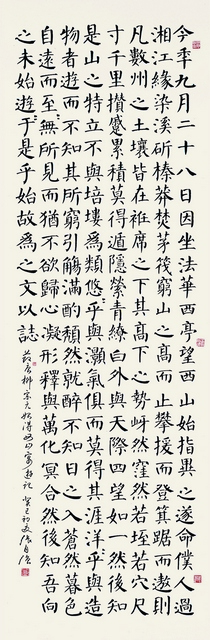 今年九月二十八日因坐法華西亭望西山始指異之遂命僕人過
湘江緣染溪斫榛莽焚茅茷窮山之高而止攀援而登箕踞而遨則
凡數州之土壤皆在衽席之下其高下之勢岈然窪然若垤若穴尺
寸千里攢蹙累積莫得遁隱縈青繚白外與天際四望如一然後知
是山之特立不與培塿爲類悠〻乎與灝氣俱而莫得其涯洋〻乎與造
物者遊而不知其所窮引觴滿酌頹然就醉不知日之入蒼然暮色
自遠而至〻無所見而猶不欲歸心凝形釋與萬化冥合然後知吾向
之未始遊〻于是乎始故爲之文以誌
唐柳宗元始得西山宴遊記 癸巳初夏